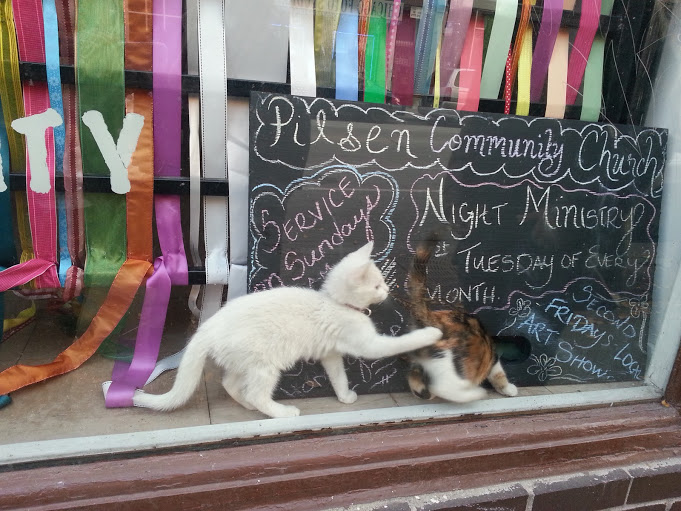 TY
Pilsen Community Church
SERVICE
Sundays
Night Ministry
Tuesday of Every
Month.
Second
Fridays
Art Show